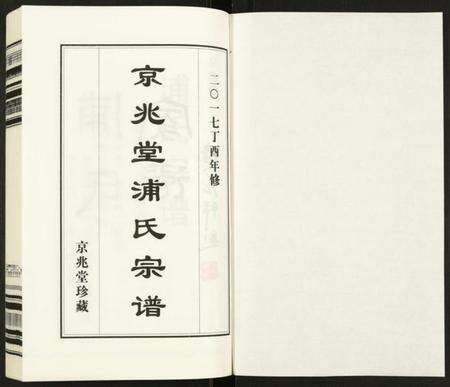 二〇一七丁酉年修
京兆堂浦氏宗谱
京兆堂珍藏